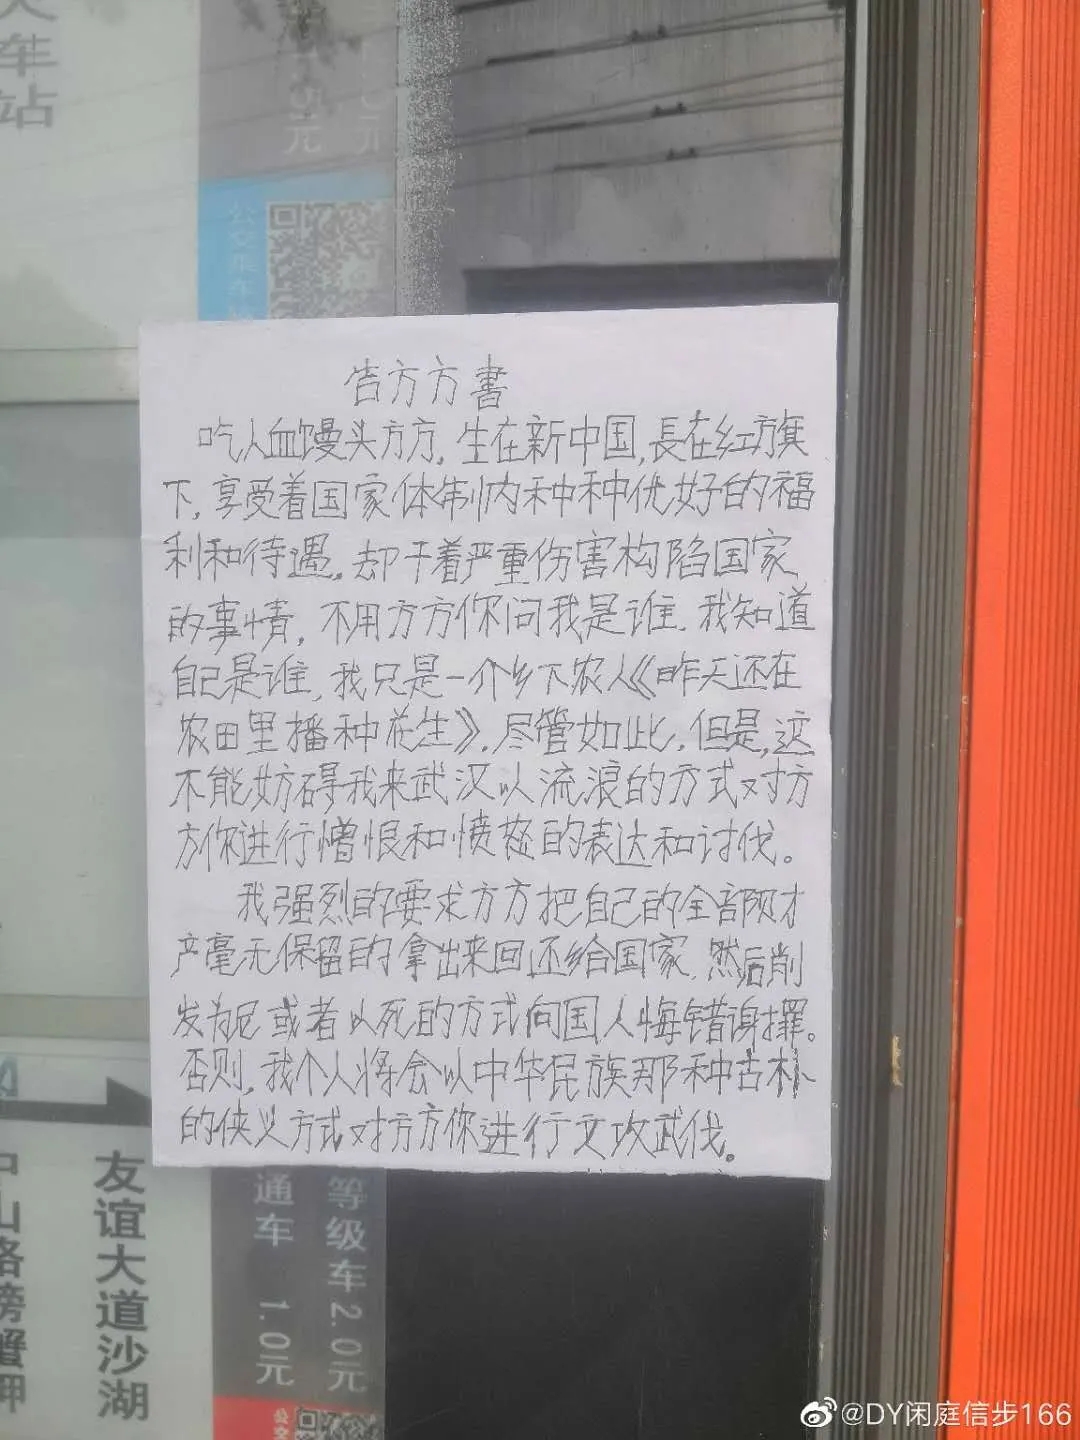 车
站
5元
元
告方方書
吃人血馒头方方，生在新中国，長在红旗
下，享受着国家体制内种种优好的福
利和待遇，却干着严重伤害构陷国家
的事情，不用方方你问我是谁，我知道
自己是谁，我只是一个乡下农人《昨天还在
农田里播种花生》，尽管如此，但是，这
不能妨碍我来武汉以流浪的方式对方
方你进行憎恨和愤怒的表达和讨伐。
我强烈的要求方方把自己的全部财才
产毫无保留的拿出来回还给国家，然后削
发为尼或者以死的方式向国人悔错谢罪。
否则，我个人将会以中华民族那种古朴
的侠义方式对方方你进行文攻武伐。
中山路螃蟹岬
友谊大道沙湖
通车 1.0元
等级车2.0元
@DY闲庭信步166